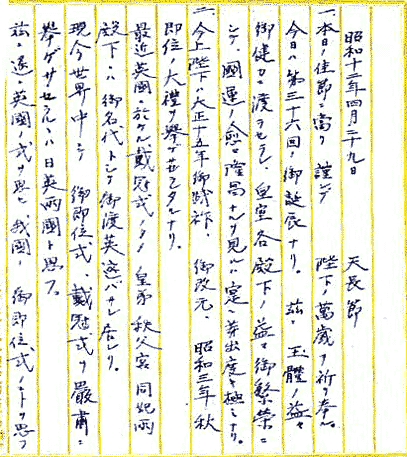 昭和十二年四月二十九日　天長節
一、本日ノ佳節ニ當リ謹ンデ　陛下ノ萬歳ヲ祈リ奉ル。
今日ハ第三十六回ノ御誕辰ナリ。茲ニ玉體ノ益々
御健カニ渡ラセラレ皇室各殿下ノ益々御繁榮ニ
シテ國運ノ愈々隆昌ナルヲ見ルハ寔ニ芽出度キ極ミナリ。
二、今上陛下ハ大正十五年御踐祚、御改元、昭和三年ノ秋
即位ノ大禮ヲ擧ゲサセラレタルナリ。
最近英國ニ於ケル戴冠式ノタメ皇弟秩父宮同妃両
殿下ハ御名代トシテ御渡英遊バサレ居レリ。
現今世界中デ御即位式、戴冠式ヲ嚴肅ニ
擧ゲサセラルヽハ日英両國ト思フ。
茲ニ遥ニ英國ノ式ヲ思ヒ我國ノ御即位式ノコトヲ思フ